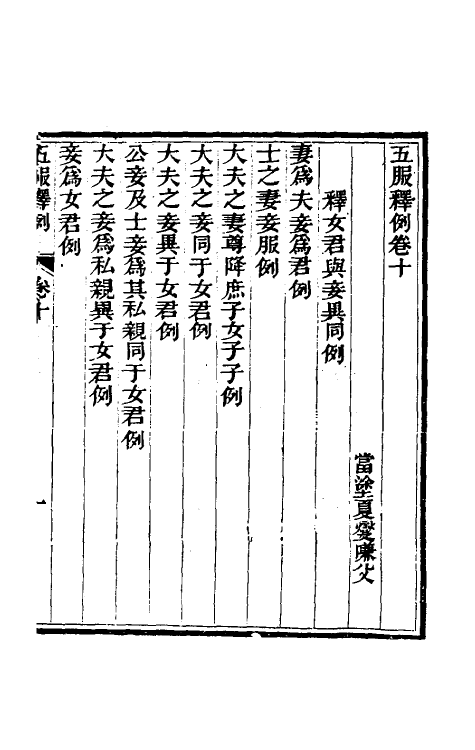 五服釋例卷十
當塗夏燮嗛父
釋女君與妾異同例
妻爲夫妾爲君例
士之妻妾服例
大夫之妻尊降庶子女子子例
大夫之妾同于女君例
大夫之妾異于女君例
公妾及士妾爲其私親同于女君例
大夫之妾爲私親異于女君例
妾爲女君例
五服釋例
卷十
一